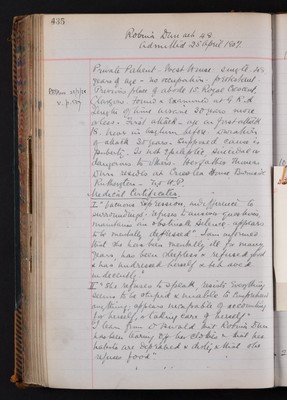 435
Robina Dunn aet 48
Admitted 25 April 1907.
Private Patient. West House. Single. 48
years of age - no occupation - protestant.
Previous place of abode 10 Royal Crescent,
Glasgow. Found & Examined at G.R.A.
Length of time insane 30 years more
or less. First attack - age on first attack
18. Never in Asylum before. Duration
of attack 30 years. Supposed cause is
puberty. Is not epileptic, suicidal or
dangerous to others. Her father Thomas
Dunn resides at House Burnside
Rutherglen -
Medical Certificates.
I "Vacuous Expression, indifferent to
surroundings. refuses to answer questions,
maintains an obstinate silence. appears
to be mentally defective" I am informed
that she has been mentally ill for many
years, has been sleepless & refused food
& has undressed herself & behaved
indecently"
II "She refuses to speak, resists everything
seems to be stupid & unable to comprehend
anything, appears incapable of accounting
for herself, & taking care of herself."
I learn from that Robina Dunn
has been tearing up her clothes & that her
habits are depraved & dirty, & that she
refuses food".